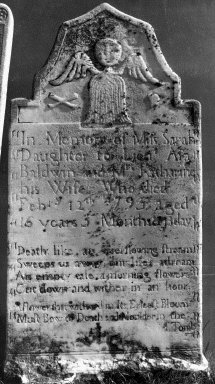 In Memory of Miss Sarah
Daughter to Lieut Asa
Baldwin and Mrs Katharine
his Wife Who died
Feb 12th 179 Aged
16 years 5 Months 1 day
Death like an overflowing Stream
Sweeps us away our lifes a dream
An empty tale a morning flower
Cut down and wither in an hour
in its Bloom
Must Bow to Death and Moulder in the
Tomb